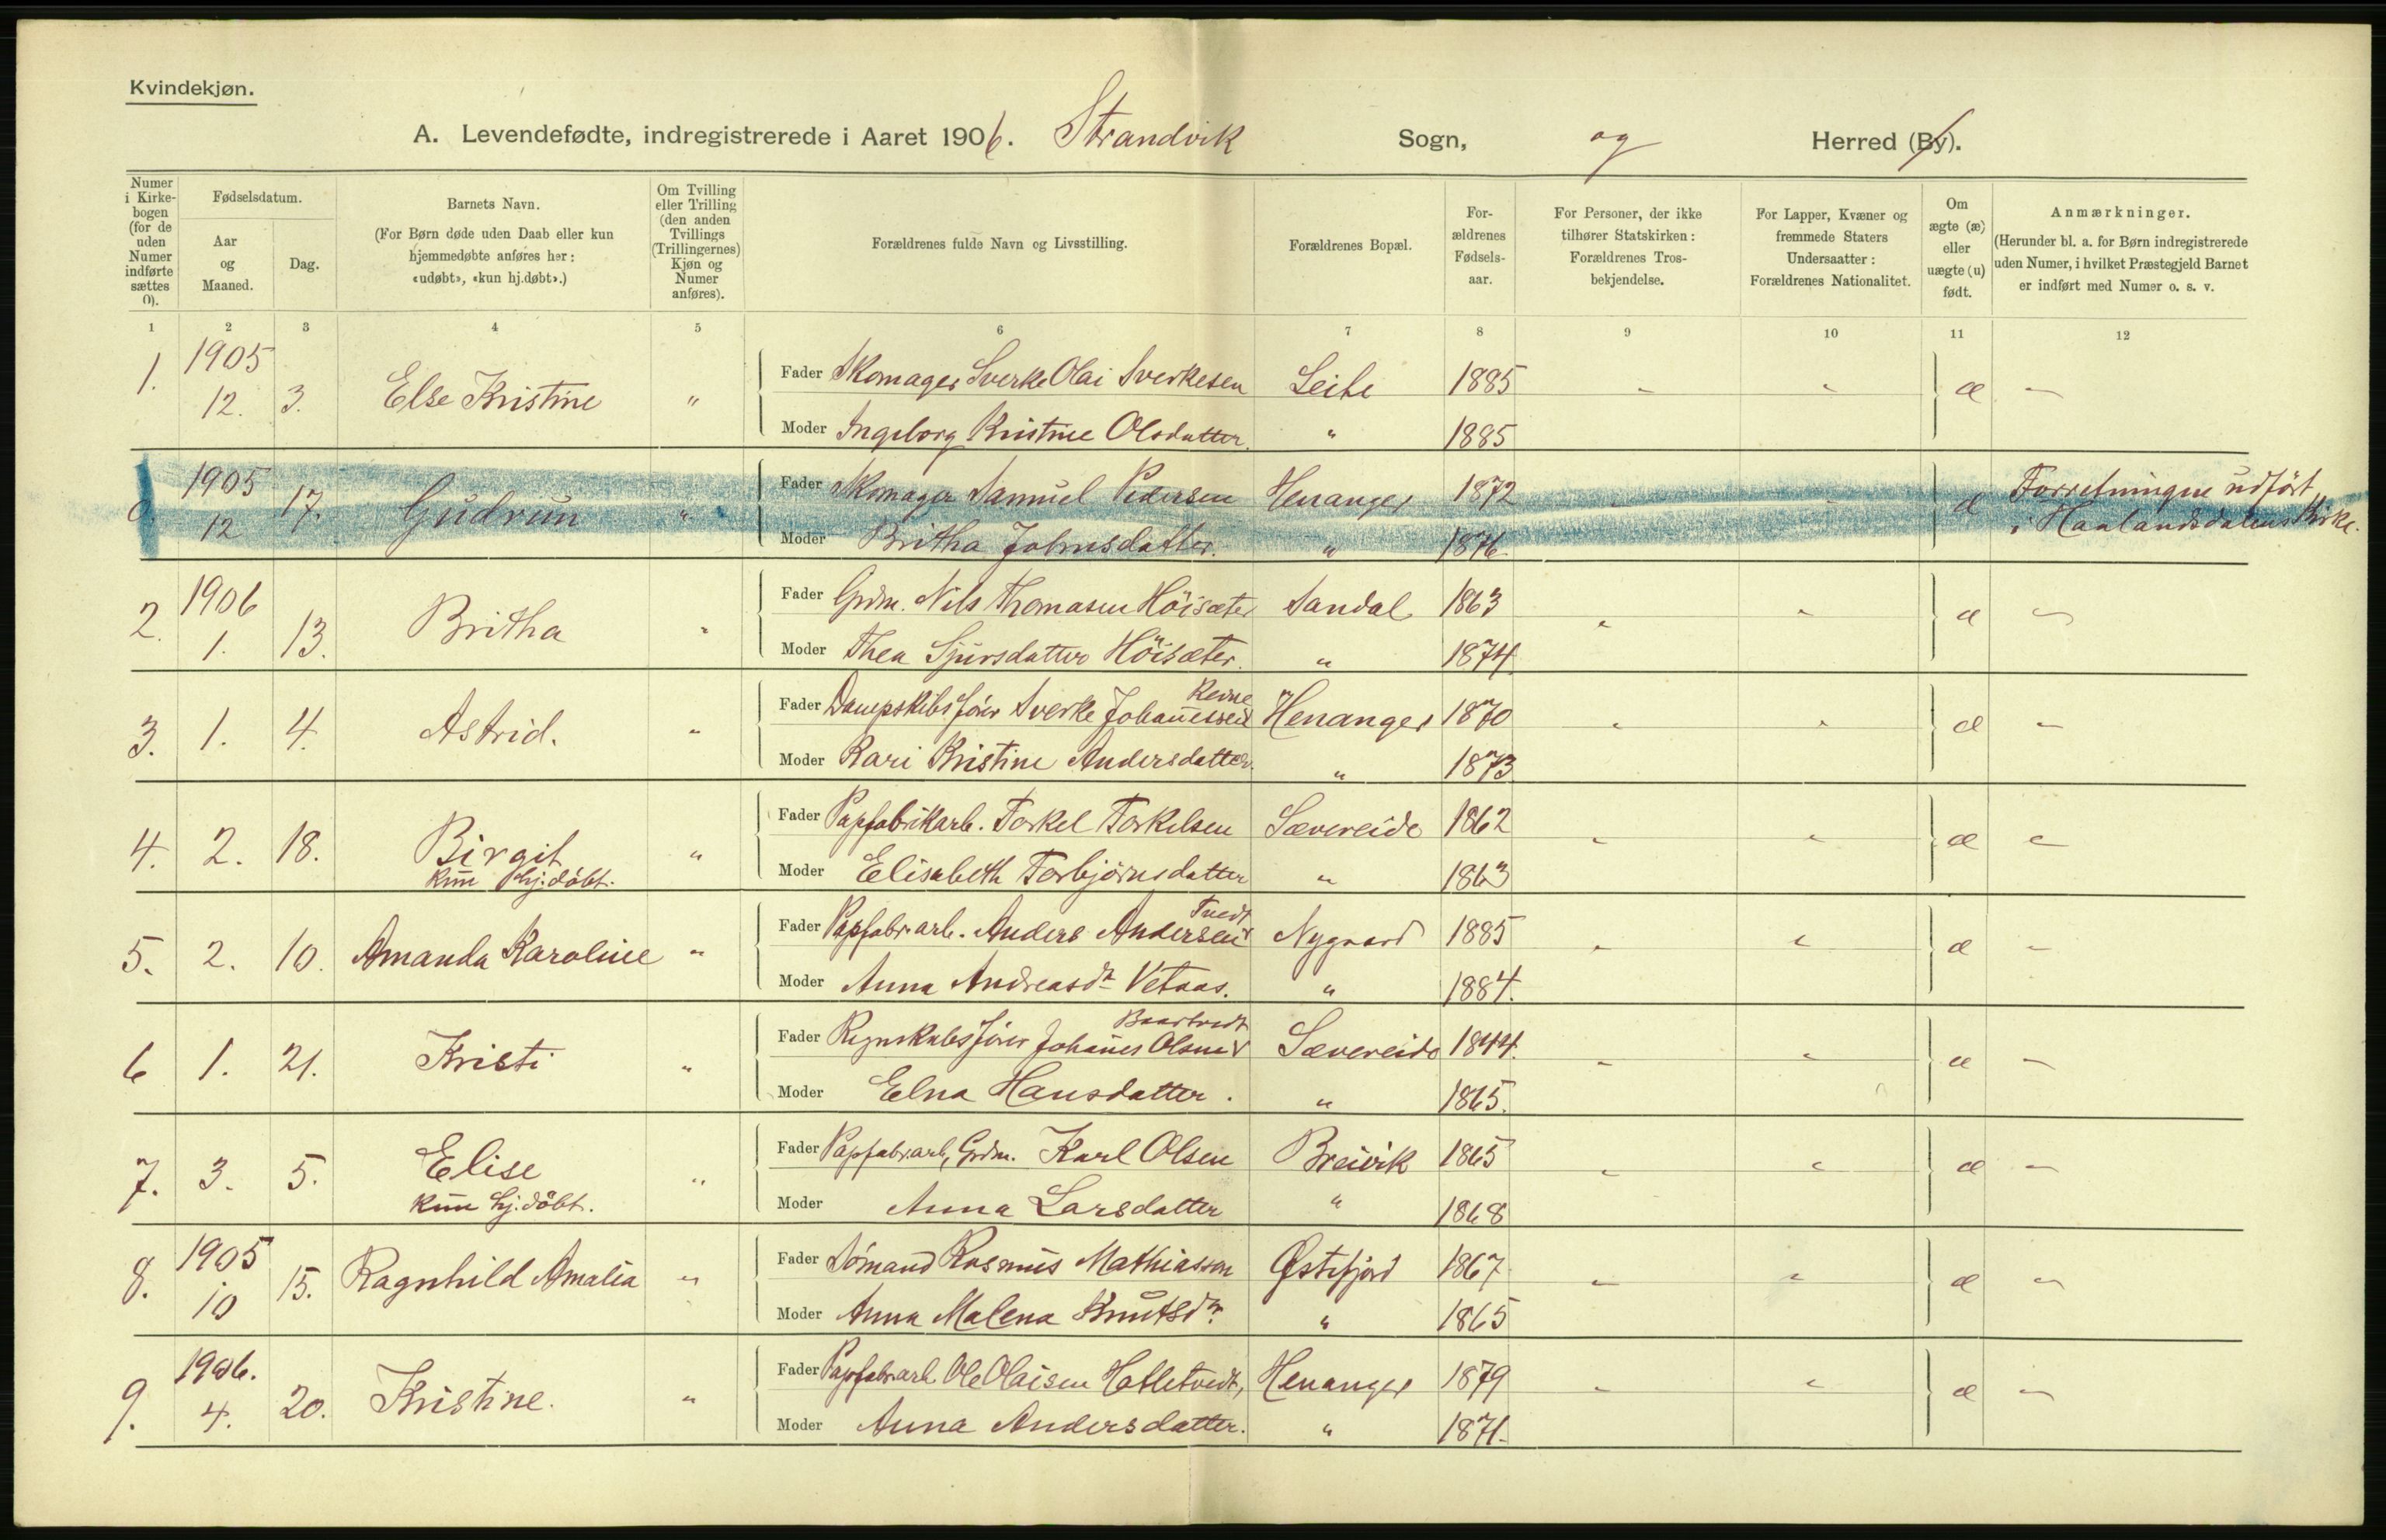 Kvindekjøn.
A. Levendefødte, indregistrerede i Aaret 1906. Strandvik Sogn, og Herred (By).
Numer i Kirke-bogen (for de uden Numer indførte sættes 0).
Fødselsdatum.
Aar og Maaned.
Dag.
Barnets Navn.
(For Børn døde uden Daab eller kun hjemmedøbte anføres her: «udøbt», «kun hj.døbt».)
Om Tvilling eller Trilling (den anden Tvillings (Trillingernes) Kjøn og Numer anføres).
Forældrenes fulde Navn og Livsstilling.
Forældrenes Bopæl.
For-ældrenes Fødsels-aar.
For Personer, der ikke tilhører Statskirken: Forældrenes Tros-bekjendelse.
For Lapper, Kvæner og fremmede Staters Undersaatter: Forældrenes Nationalitet.
Om ægte (æ) eller uægte (u) født.
Anmærkninger.
(Herunder bl. a. for Børn indregistrerede uden Numer, i hvilket Præstegjeld Barnet er indført med Numer o. s. v.
1 2 3 4 5 6 7 8 9 10 11 12
1. 1905 12. 3. Else Kristine " Fader Skomager Sverke Olai Sverkesen Leite 1885 " " æ —
Moder Ingeborg Kristine Olsdatter. " 1885
0. 1905 12 17. Gudrun " Fader Skomager Samuel Pedersen Henanger 1872 " " æ Forretningen udført i Haalandsdalens Kirke.
Moder Britha Johnsdatter. " 1876
2. 1906 1. 13. Britha " Fader Grdm. Nils Thomasen Höisæter Sandal 1863 " " æ —
Moder Thea Sjursdatter Höisæter. " 1874
3. 1. 4. Astrid. " Fader Dampskibsfører Sverke Johannessen Revne Henanger 1870 " " æ —
Moder Kari Kristine Andersdatter. " 1873
4. 2. 18. Birgit kun hj.döbt. " Fader Papfabrikarb. Torkel Torkelsen Sævereide 1862 " " æ —
Moder Elisabeth Torbjørnsdatter " 1863
5. 2. 10. Amanda Karoline " Fader Papfabr.arb. Anders Andersen Tvedt Nygaard 1885 " " æ —
Moder Anna Andreasdr Vetaas. " 1884.
6 1. 21. Kristi " Fader Regnskabsfører Johannes Olsen Baartvedt Sævereide 1844. " " æ —
Moder Elna Hansdatter. " 1865.
7. 3. 5. Elise kun hj.döbt. " Fader Papfabr.arb, Grdm. Karl Olsen Breivik 1865 " " æ —
Moder Anna Larsdatter " 1868
8. 1905 10 15. Ragnhild Amalia " Fader Sømand Rasmus Mathiassen Østefjord 1867 " " æ —
Moder Anna Malena Knutsdr. " 1865
9. 1906. 4. 20. Kristine. " Fader Papfabr.arb Ole Olaisen Hatletvedt, Henanger 1879 " " æ —
Moder Anna Andersdatter. " 1871.